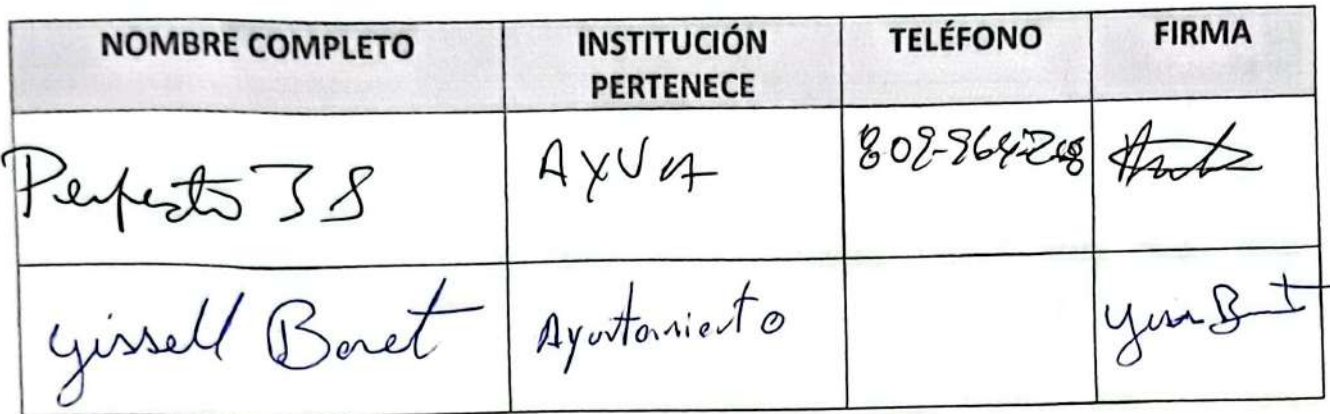 NOMBRE COMPLETO INSTITUCIÓN PERTENECE TELÉFONO FIRMA
Perfecto AYUA
Yissell Boret Ayuntamiento